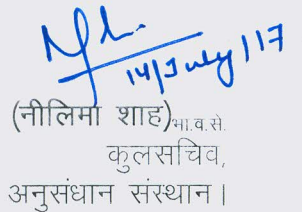 14/July/17
(नीलिमा शाह) भा.व.से.
कुलसचिव,
अनुसंधान संस्थान।